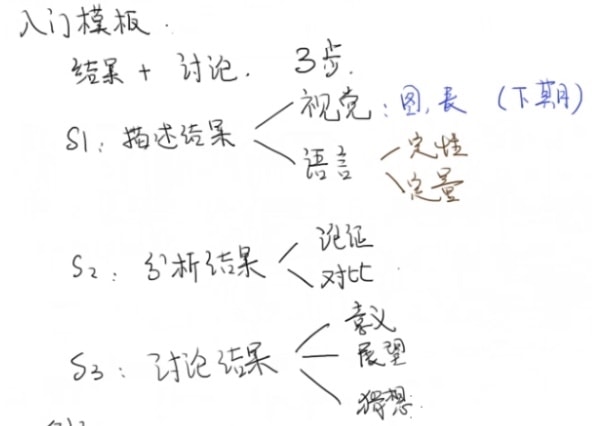 入门模板.
结果 + 讨论. 3步.
S1: 描述结果
视觉: 图, 表 (下期)
语言
定性
定量
S2: 分析结果
论证
对比
S3: 讨论结果
意义
展望
猜想